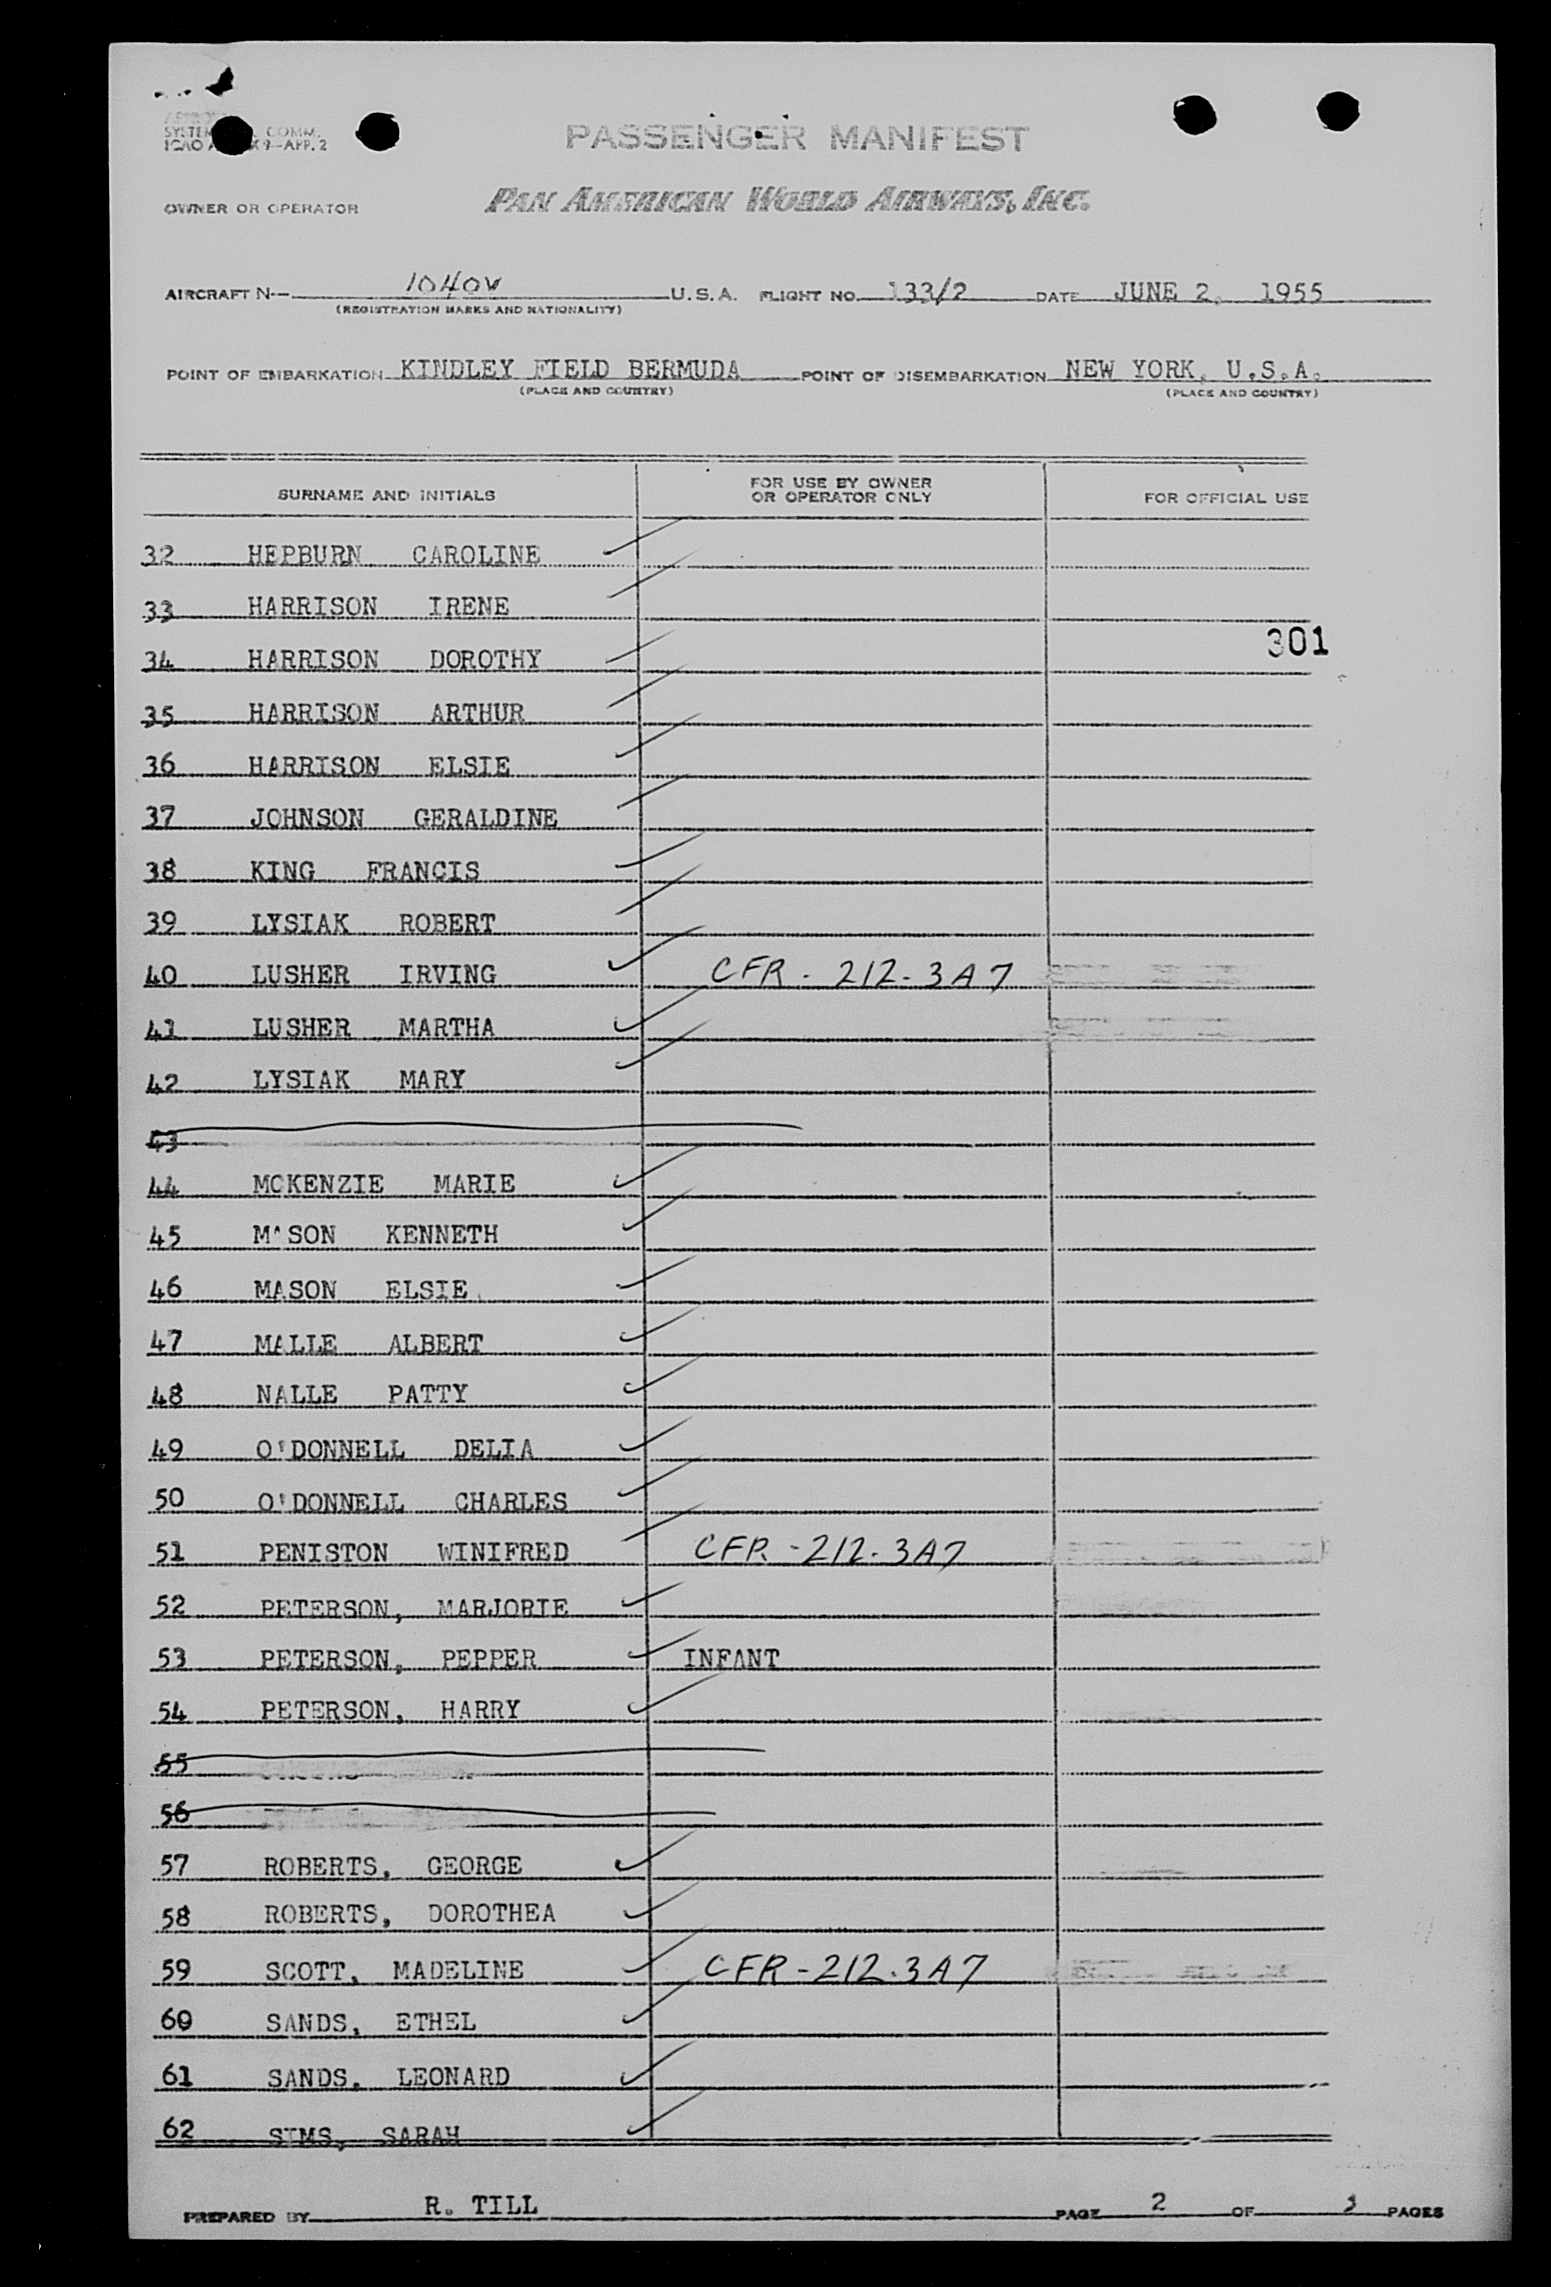 SYSTEM COMM.
ICAO 9-APP. 2
PASSENGER MANIFEST
OWNER OR OPERATOR PAN AMERICAN WORLD AIRWAYS, INC.
AIRCRAFT N- 1040V U.S.A. FLIGHT NO. 133/2 DATE JUNE 2, 1955
(REGISTRATION MARKS AND NATIONALITY)
POINT OF EMBARKATION KINDLEY FIELD BERMUDA POINT OF DISEMBARKATION NEW YORK, U.S.A.
(PLACE AND COUNTRY) (PLACE AND COUNTRY)
SURNAME AND INITIALS FOR USE BY OWNER OR OPERATOR ONLY FOR OFFICIAL USE
32 HEPBURN CAROLINE
33 HARRISON IRENE
301
34 HARRISON DOROTHY
35 HARRISON ARTHUR
36 HARRISON ELSIE
37 JOHNSON GERALDINE
38 KING FRANCIS
39 LYSIAK ROBERT
40 LUSHER IRVING CFR - 212 - 3A7
41 LUSHER MARTHA
42 LYSIAK MARY
43
44 MCKENZIE MARIE
45 M^SON KENNETH
46 MASON ELSIE
47 MALLE ALBERT
48 NALLE PATTY
49 O'DONNELL DELIA
50 O'DONNELL CHARLES
51 PENISTON WINIFRED CFR - 212 - 3A7
52 PETERSON, MARJORIE
53 PETERSON, PEPPER INFANT
54 PETERSON, HARRY
55
56
57 ROBERTS, GEORGE
58 ROBERTS, DOROTHEA
59 SCOTT, MADELINE CFR - 212.3A7
60 SANDS, ETHEL
61 SANDS, LEONARD
62 SIMS, SARAH
PREPARED BY R. TILL PAGE 2 OF 3 PAGES